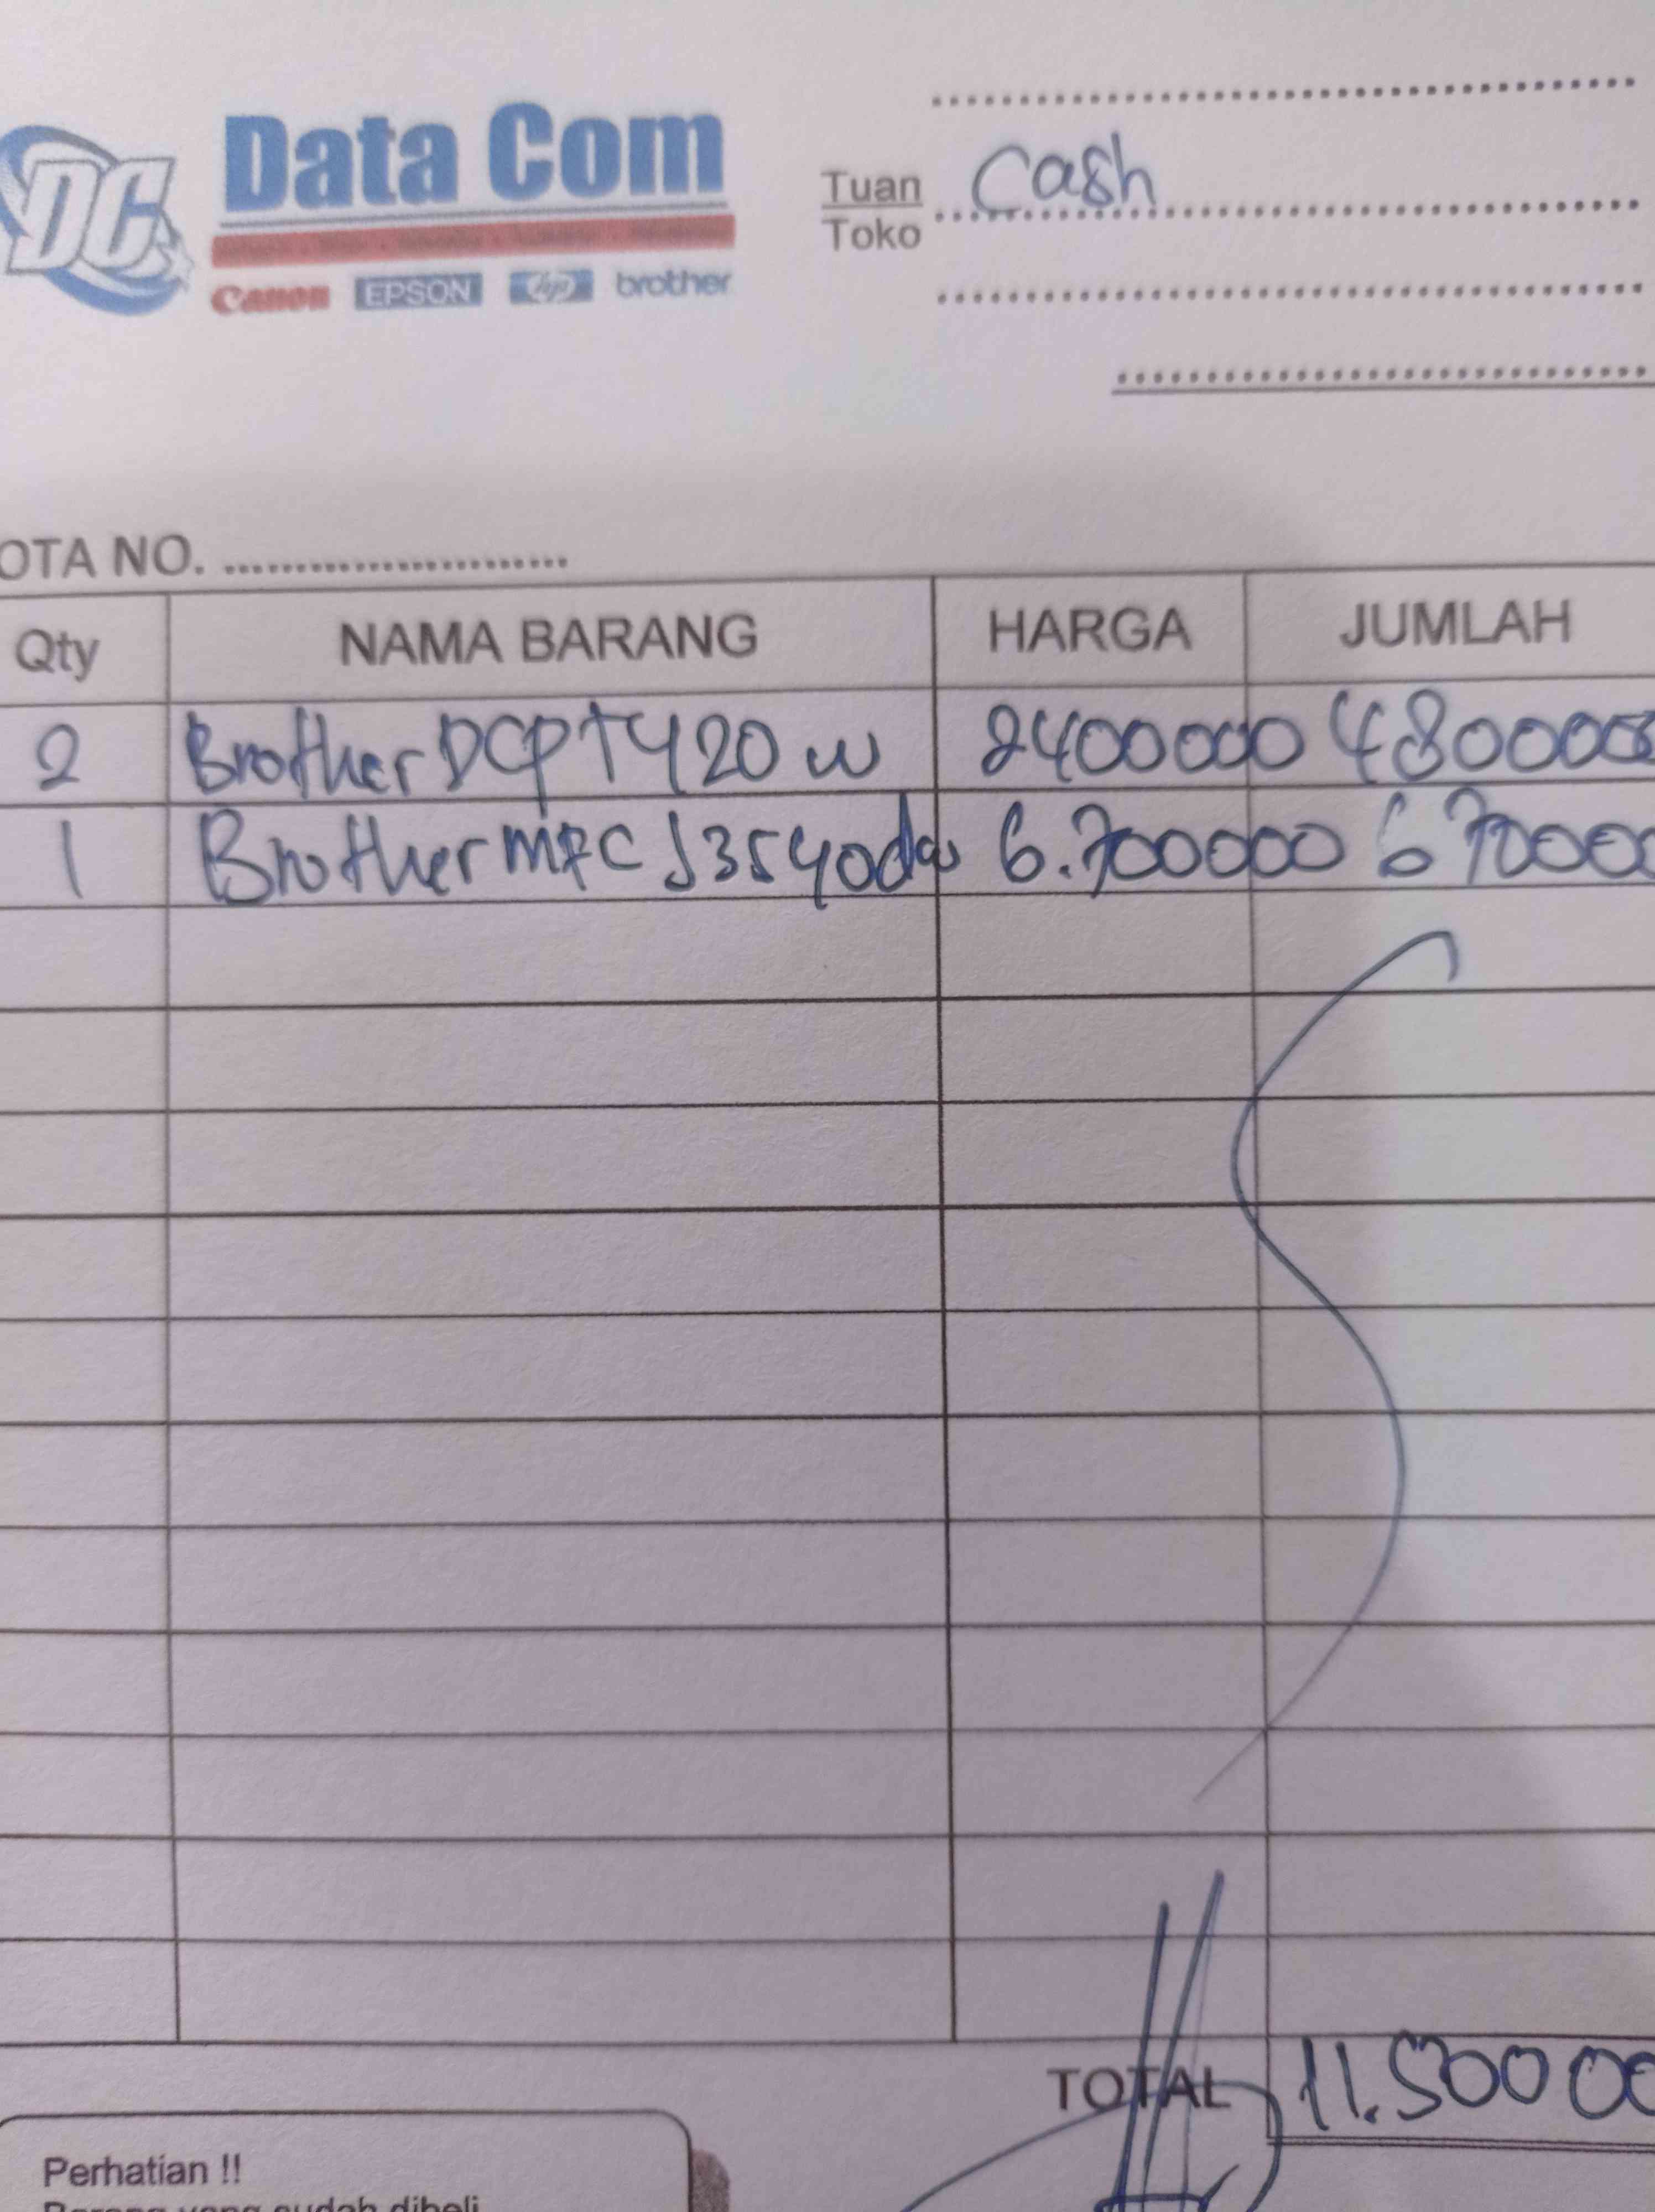 DC
Data Com
Canon EPSON hp brother
Tuan Cash
Toko
OTA NO. ........................
Qty NAMA BARANG HARGA JUMLAH
2 Brother DCP T420 w 2400000 4800000
1 Brother MFC J3540dw 6.700000 670000
TOTAL 11.50000
Perhatian !!
Barang yang sudah dibeli